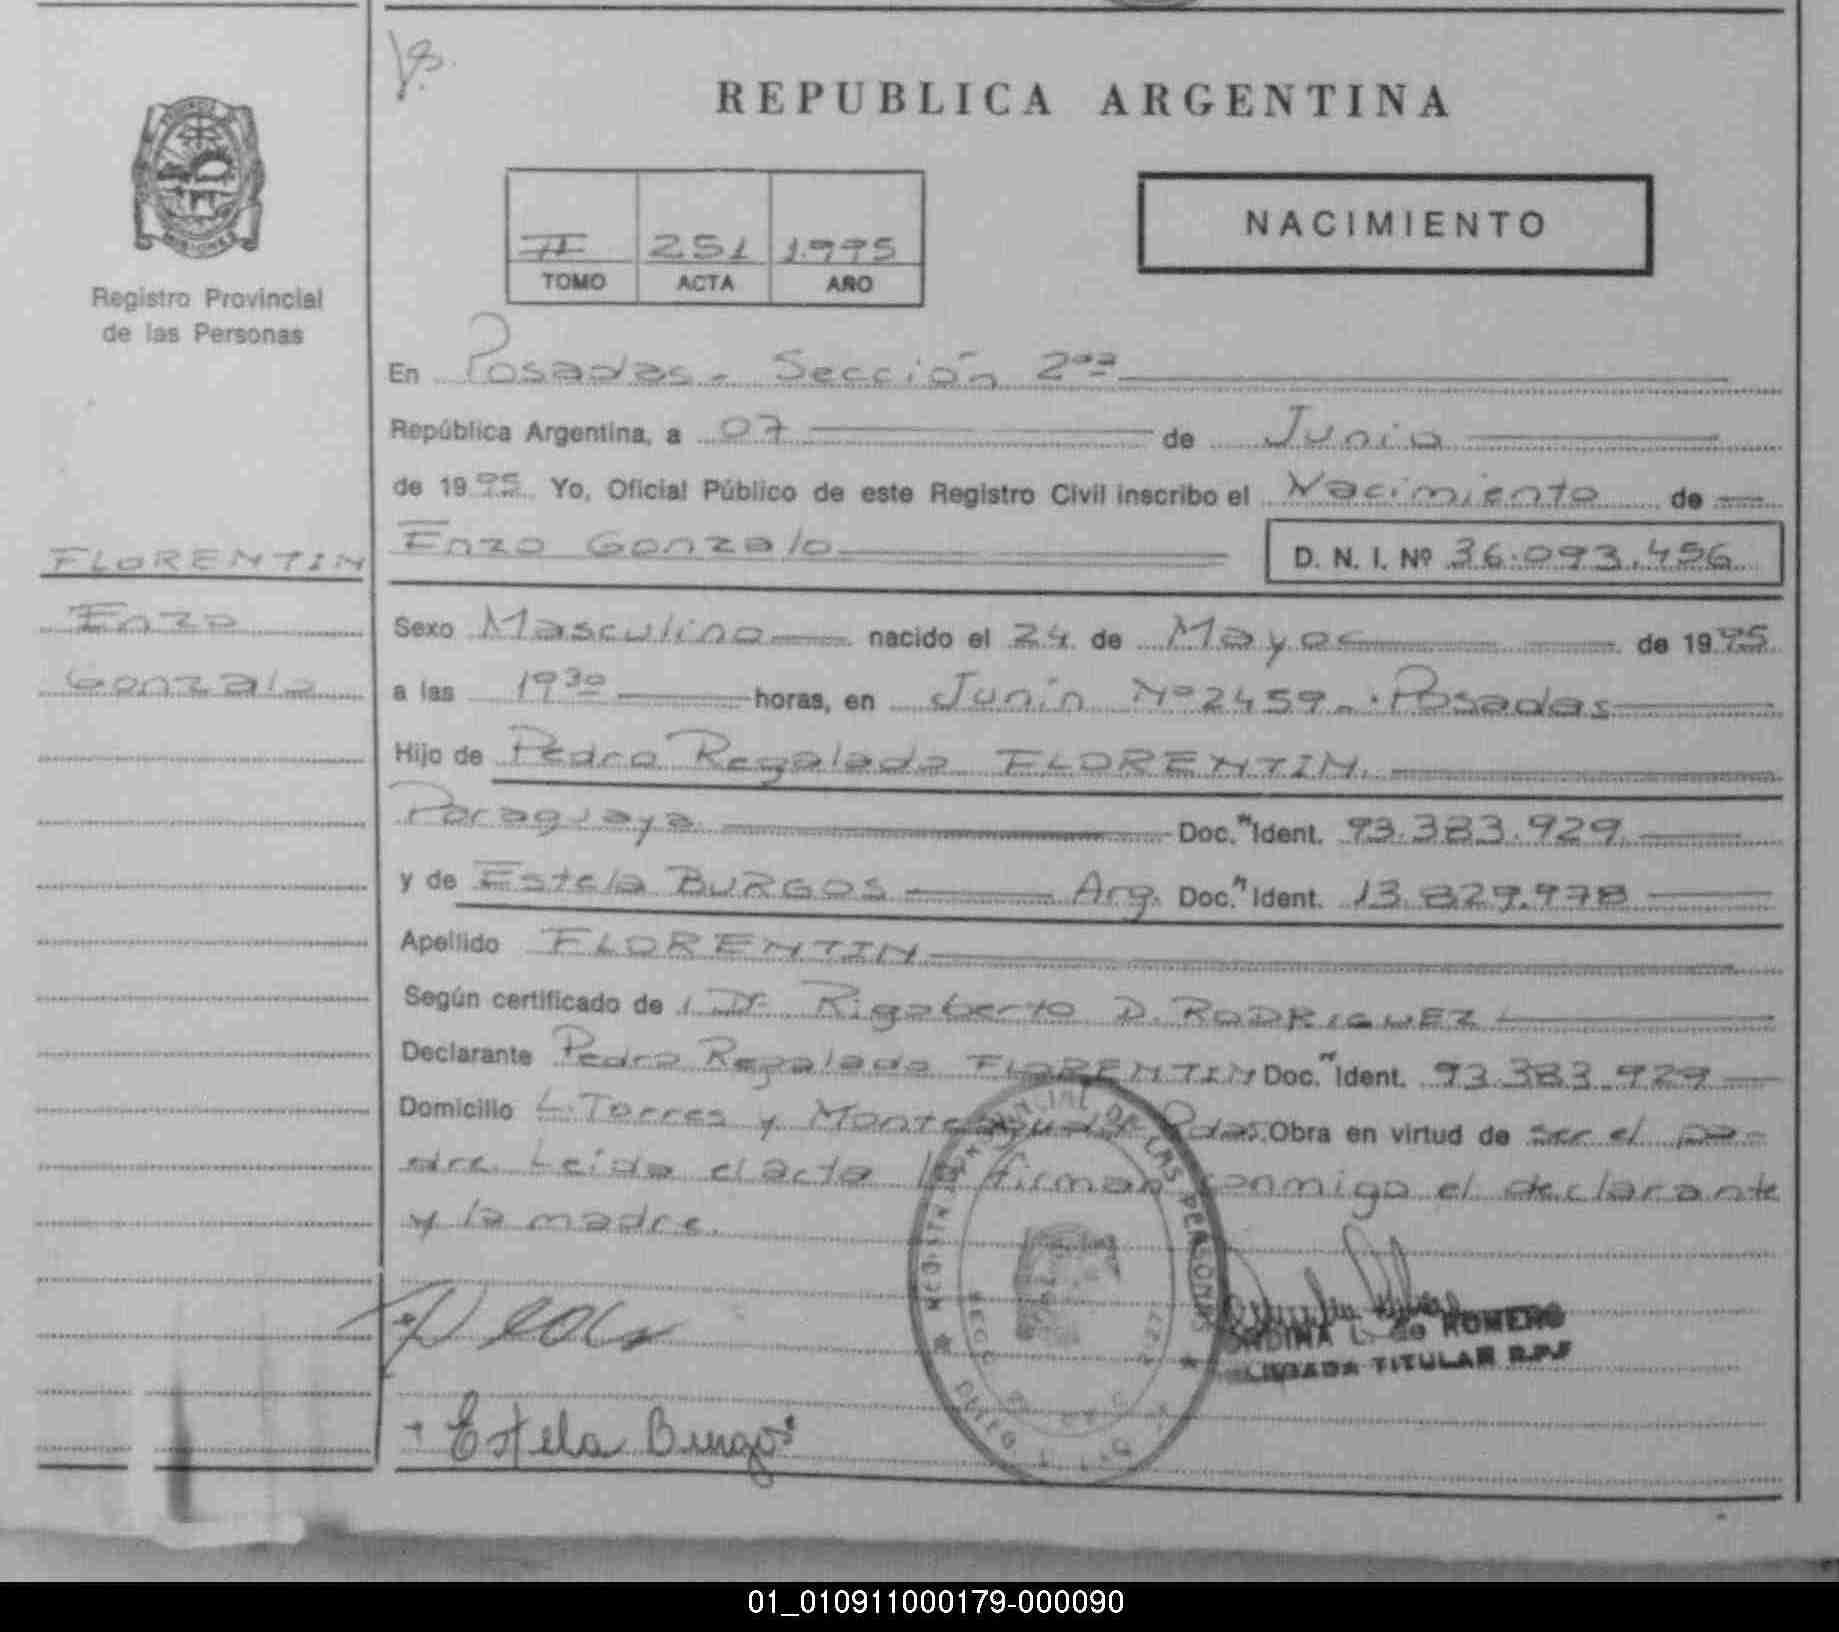 REPUBLICA ARGENTINA
Registro Provincial
de las Personas
II 251 1.995
TOMO ACTA AÑO
NACIMIENTO
En Posadas - Sección 2da
República Argentina, a 07 de Junio
de 1995 Yo, Oficial Público de este Registro Civil inscribo el Nacimiento de
Enzo Gonzalo
D. N. I. Nº 36.093.456
FLORENTIN
Enzo
Gonzalo
Sexo Masculino nacido el 24 de Mayo de 1995
a las 19³⁰ horas, en Junín Nº 2459 - Posadas
Hijo de Pedro Regalado FLORENTIN
Paraguaya Doc. Ident. 93.383.929
y de Estela BURGOS Arg. Doc. Ident. 13.829.978
Apellido FLORENTIN
Según certificado de Dr. Rigoberto D. RODRIGUEZ
Declarante Pedro Regalado FLORENTIN Doc. Ident. 93.383.929
Domicilio L. Torres y Monteagudo Pdas. Obra en virtud de ser el pa-
dre. Leída el acta la firman conmigo el declarante
y la madre.
Estela Burgos
L. de ROMERO
TITULAR R.P.
01_010911000179-000090